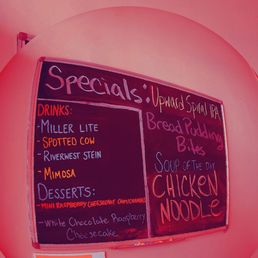 Specials:
DRINKS:
-MILLER LITE
-SPOTTED COW
-RIVERWEST STEIN
-MIMOSA
DESSERTS:
-MINI RASPBERRY CHEESECAKE
-White Chocolate Raspberry
Cheesecake
Upward Spiral IPA
Bread Pudding
Bites
SOUP OF THE DAY
CHICKEN
NOODLE